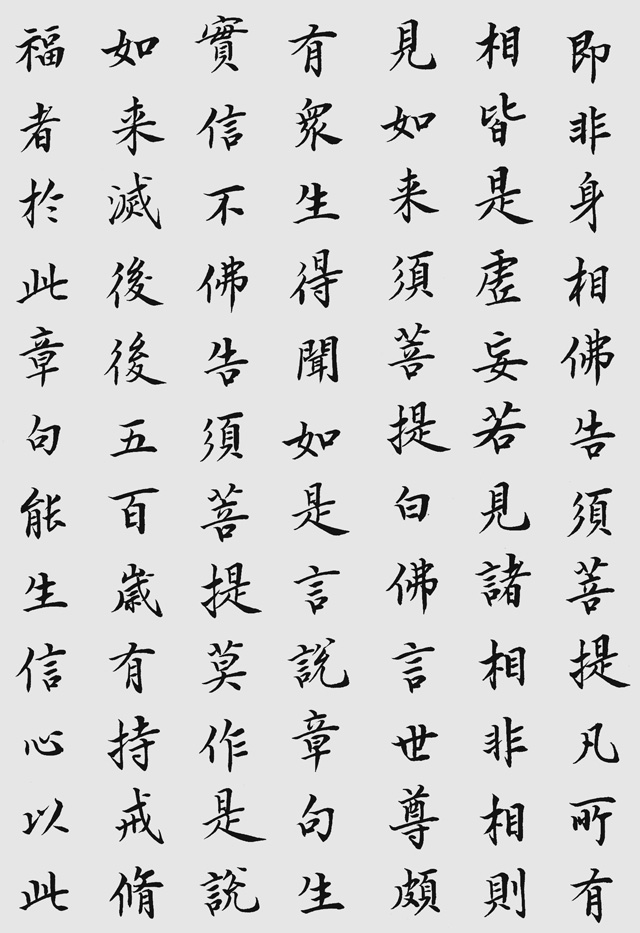 即非身相佛告須菩提凡所有
相皆是虛妄若見諸相非相則
見如来須菩提白佛言世尊頗
有眾生得聞如是言說章句生
實信不佛告須菩提莫作是說
如来滅後後五百歲有持戒脩
福者於此章句能生信心以此